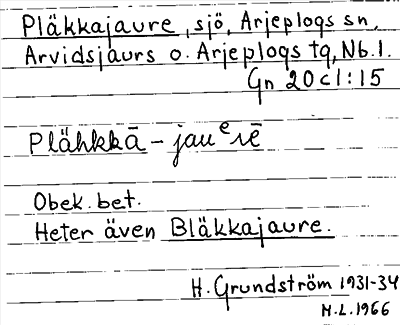 Pläkkajaure, sjö, Arjeplogs sn,
Arvidsjaurs o. Arjeplogs tg, Nb. l.
Gn 20 c l : 15
Plähkkā – jauᵉrē
Obek. bet.
Heter även Bläkkajaure.
H. Grundström 1931-34
M.L. 1966